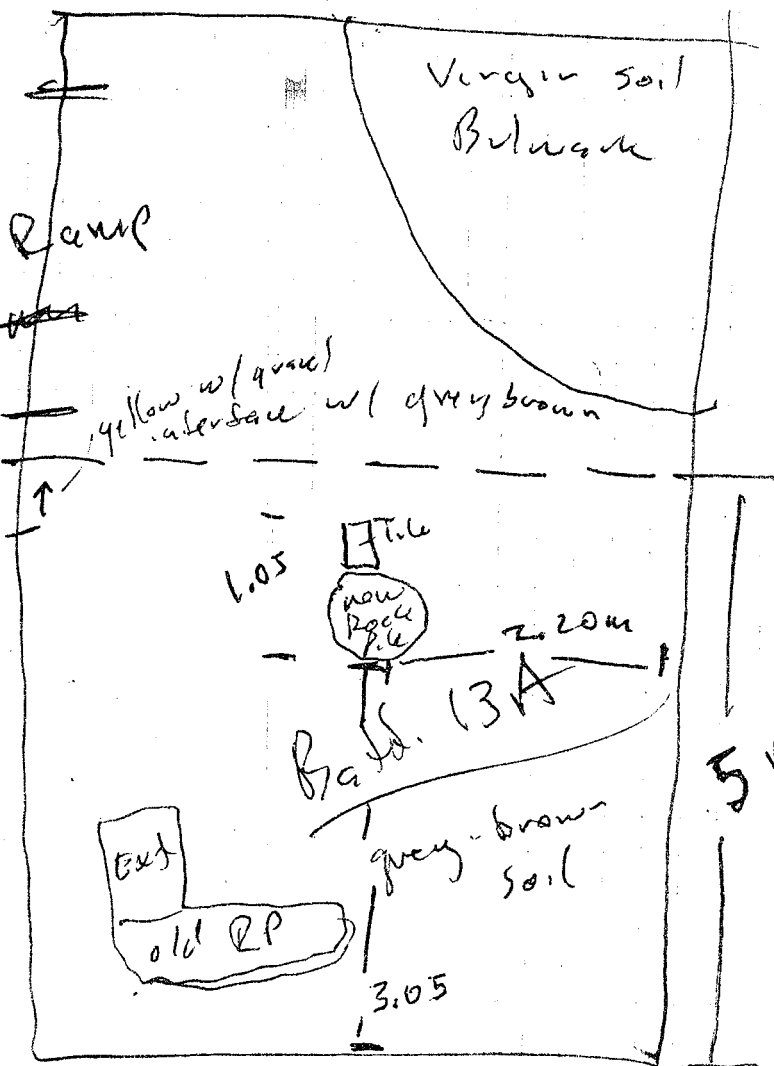 Virgin soil
Bulwark
Ramp
yellow w/ gravel
interface w/ grey brown
Tile
1.05
new
Rock
Pile
2.20m
13A
5
grey-brown
soil
Ext
old RP
3.05